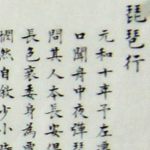 琵琶行
元和十年予左遷
口聞舟中夜彈琵
問其人本長安倡
長色衰委身為賈
憫然自敘少小時